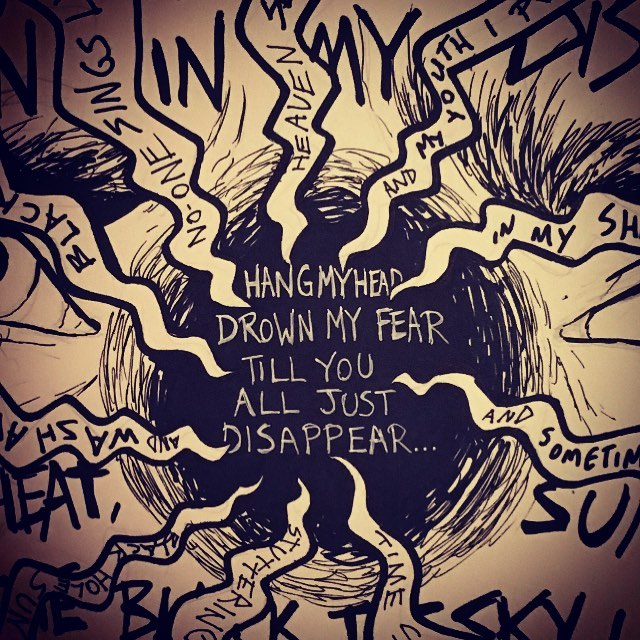 IN MY
NO-ONE SINGS
HEAVEN
AND MY YOUTH I
IN MY SH
HANG MY HEAD
DROWN MY FEAR
TILL YOU
ALL JUST
DISAPPEAR...
AND WASH A
AND SOMETIM
HEAT,
SU
BLACK HOLE SUN
TIME
SKY